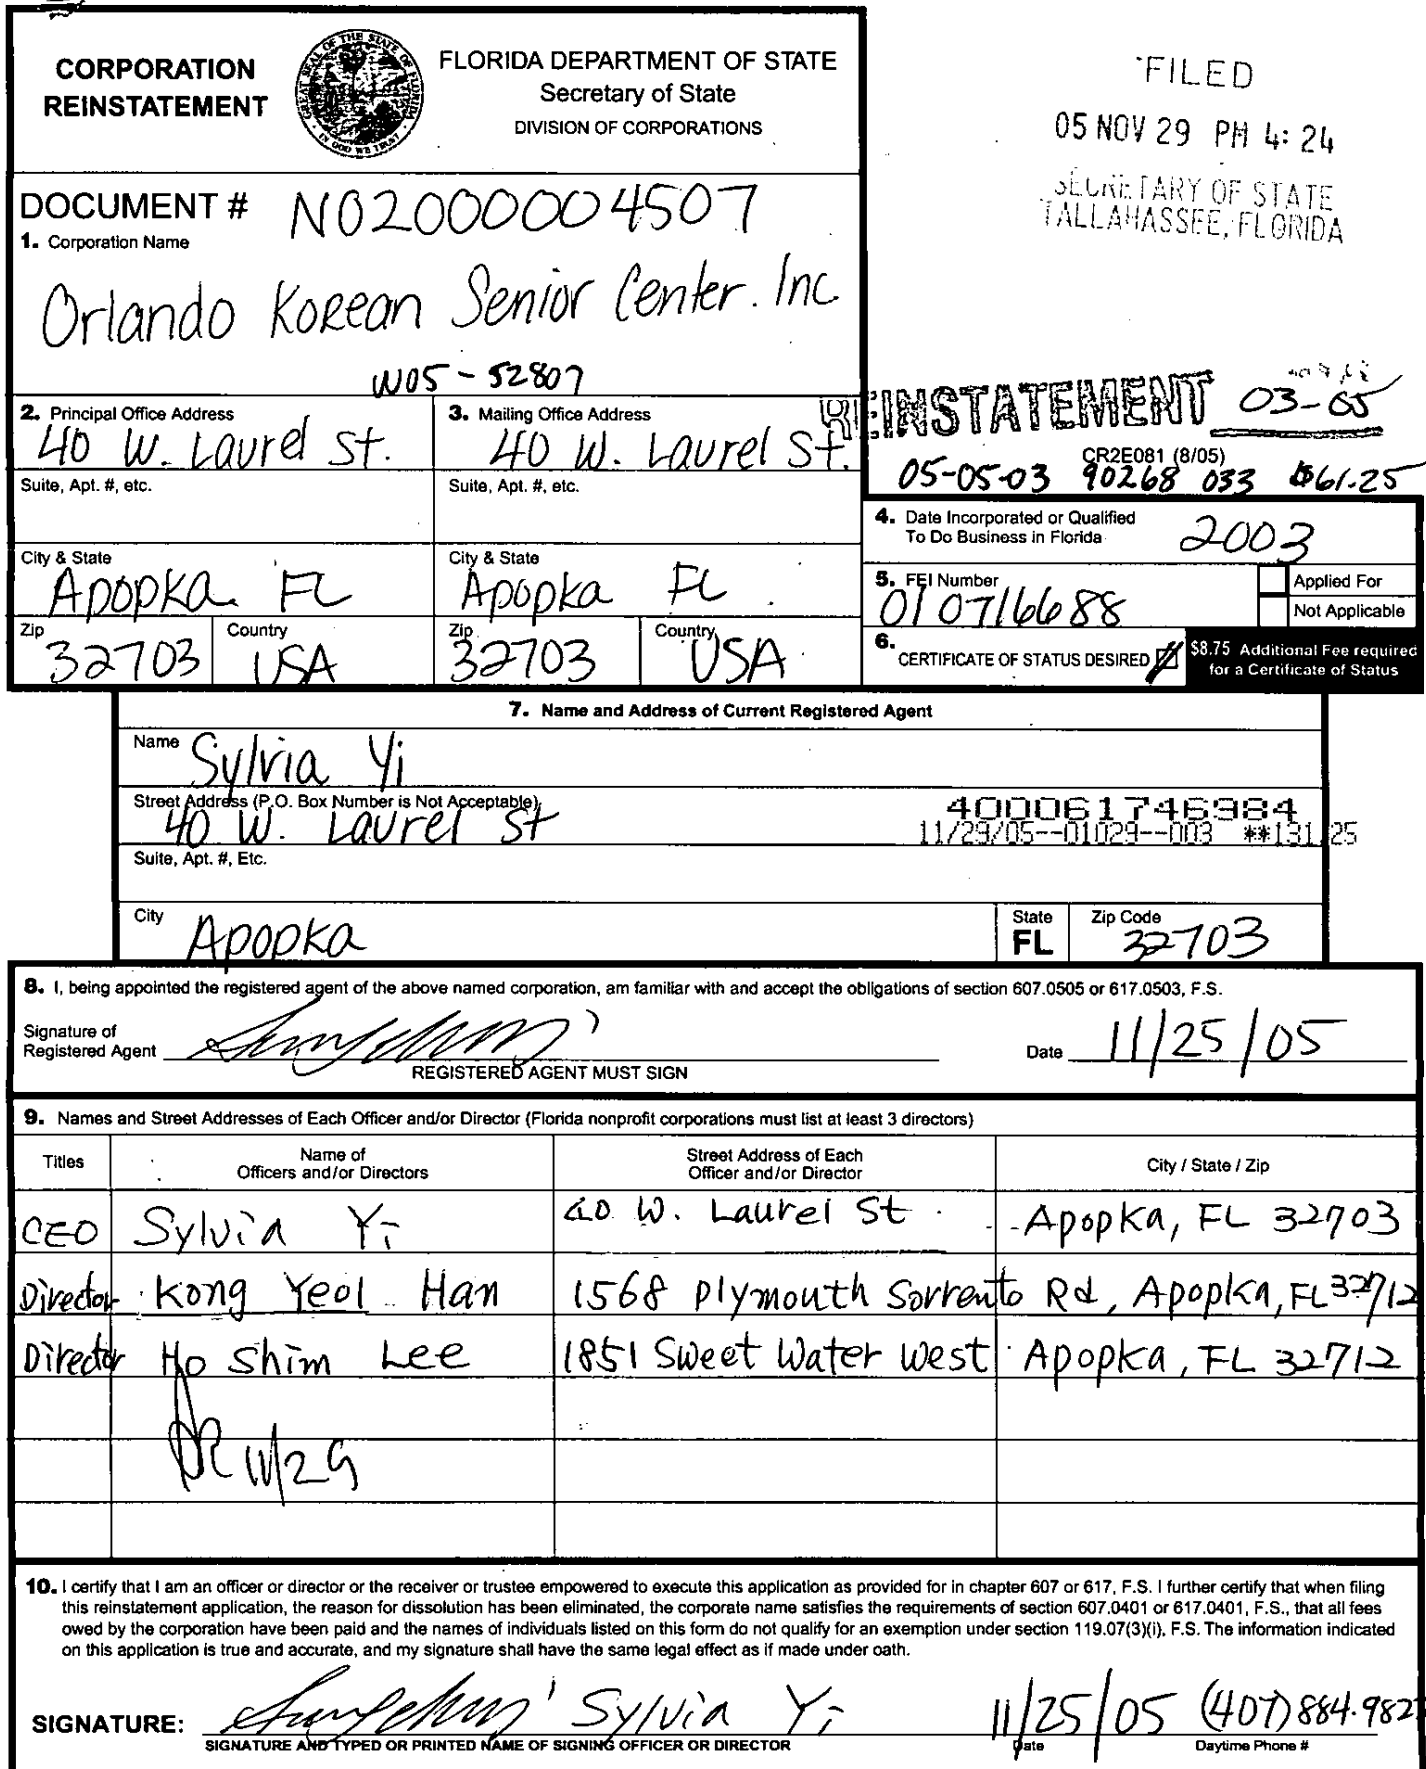 CORPORATION
REINSTATEMENT
FLORIDA DEPARTMENT OF STATE
Secretary of State
DIVISION OF CORPORATIONS
FILED
05 NOV 29 PM 4:24
SECRETARY OF STATE
TALLAHASSEE, FLORIDA
DOCUMENT # N02000004507
1. Corporation Name
Orlando Korean Senior Center. Inc
W05-52807
REINSTATEMENT 03-05
CR2E081 (8/05)
05-05-03 90268 033 $61.25
2. Principal Office Address
40 W. Laurel St.
3. Mailing Office Address
40 W. Laurel St.
Suite, Apt. #, etc.
Suite, Apt. #, etc.
City & State
Apopka FL
City & State
Apopka FL
Zip
32703
Country
USA
Zip
32703
Country
USA
4. Date Incorporated or Qualified
To Do Business in Florida
2003
5. FEI Number
010716688
Applied For
Not Applicable
6.
CERTIFICATE OF STATUS DESIRED
$8.75 Additional Fee required
for a Certificate of Status
7. Name and Address of Current Registered Agent
Name
Sylvia Yi
Street Address (P.O. Box Number is Not Acceptable)
40 W. Laurel St
400061746984
11/29/05--01029--003 **131.25
Suite, Apt. #, Etc.
City
Apopka
State
FL
Zip Code
32703
8. I, being appointed the registered agent of the above named corporation, am familiar with and accept the obligations of section 607.0505 or 617.0503, F.S.
Signature of
Registered Agent
REGISTERED AGENT MUST SIGN
Date 11/25/05
9. Names and Street Addresses of Each Officer and/or Director (Florida nonprofit corporations must list at least 3 directors)
Titles
Name of
Officers and/or Directors
Street Address of Each
Officer and/or Director
City / State / Zip
CEO Sylvia Yi 40 W. Laurel St Apopka, FL 32703
Director Kong Yeol Han 1568 Plymouth Sorrento Rd, Apopka, FL 32712
Director Ho Shim Lee 1851 Sweet Water West Apopka, FL 32712
11/29
10. I certify that I am an officer or director or the receiver or trustee empowered to execute this application as provided for in chapter 607 or 617, F.S. I further certify that when filing
this reinstatement application, the reason for dissolution has been eliminated, the corporate name satisfies the requirements of section 607.0401 or 617.0401, F.S., that all fees
owed by the corporation have been paid and the names of individuals listed on this form do not qualify for an exemption under section 119.07(3)(i), F.S. The information indicated
on this application is true and accurate, and my signature shall have the same legal effect as if made under oath.
SIGNATURE: Sylvia Yi 11/25/05 (407)884-982
SIGNATURE AND TYPED OR PRINTED NAME OF SIGNING OFFICER OR DIRECTOR
Date
Daytime Phone #